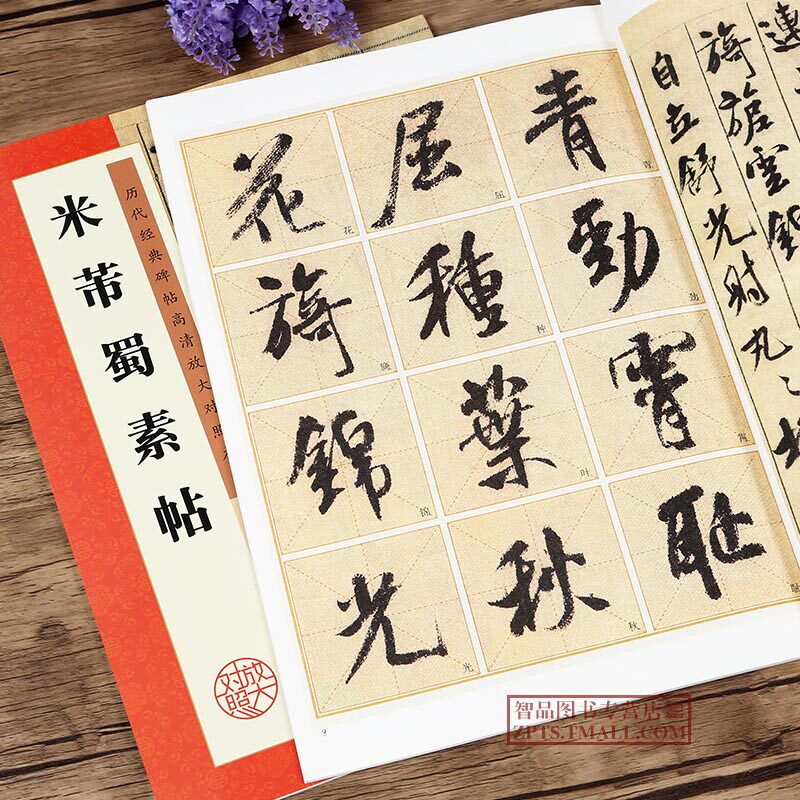 历代经典碑帖高清放大对照
米芾蜀素帖
放大对照
連
旖旎雲錦
自立舒光射丸丸
青 青
勁 劲
霄 霄
耻 耻
屈 屈
種 种
葉 叶
秋 秋
花 花
旖 旖
錦 锦
光 光
2
智品图书专营店
ZPTS.TMALL.COM